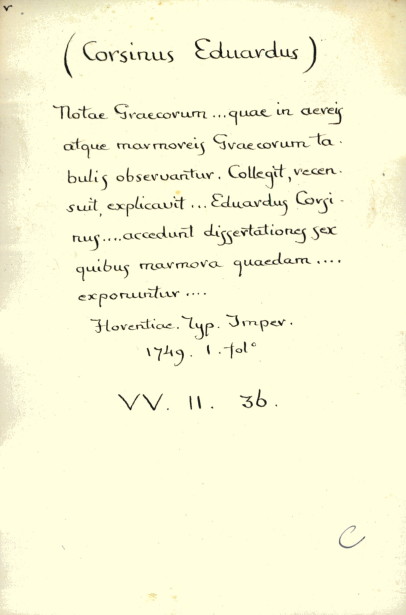 (Corsinus Eduardus)
Notae Graecorum ... quae in aereis
atque marmoreis Graecorum ta-
bulis observantur. Collegit, recen-
suit, explicavit ... Eduardus Corsi-
nus.... accedunt dissertationes sex
quibus marmora quaedam ....
exponuntur ....
Florentiae. Typ. Imper.
1749. 1. fol°
VV. II. 36.
C